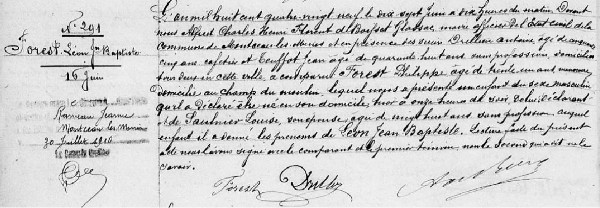 N° 291
Forest Léon Jean Baptiste
16 Juin
Marié
Jeanne
Montceau les Mines
30 Juillet 1910
L'an mil huit cent quatre vingt neuf le dix sept juin à dix heures du matin Devant
nous Alfred Charles Henri Florent de maire officier de l'Etat civil de la
commune de Montceau les Mines et en présence des sieurs Drillien Antoine âgé de
cinq ans cafetier et Jean âgé de quarante huit ans sans profession domiciliés
tous deux en cette ville a comparu Forest Philippe âgé de trente un ans
Domicilié au Champ du moulin lequel nous a présenté un enfant du sexe masculin
qu'il a déclaré être né en son domicile hier à onze heures du soir De lui déclarant
et de Louise, son épouse, âgée de vingt huit ans sans profession auquel
enfant il a donné les prénoms de Léon Jean Baptiste. Lecture faite du présent
acte nous l'avons signé avec le comparant et le premier témoin non le second qui a dit ne le
savoir.
Forest